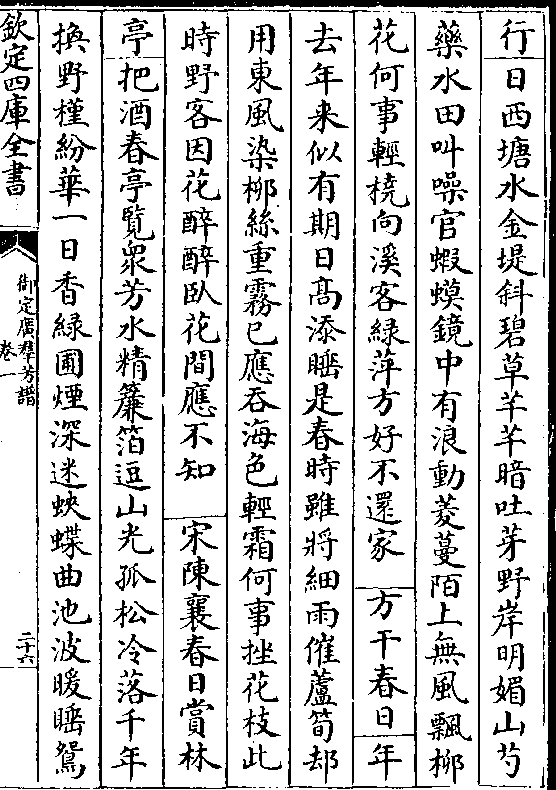 行日西塘水金堤斜碧草芊芊暗吐芽野岸明媚山芍
藥水田叫噪官蝦蟆鏡中有浪動菱蔓陌上無風飄柳
花何事輕橈向溪客綠萍方好不還家 方干春日年
去年来似有期日髙添睡是春時雖將細雨催蘆筍却
用東風染柳絲重霧已應吞海色輕霜何事挫花枝此
時野客因花醉醉臥花間應不知 宋陳襄春日賞林
亭把酒春亭覽衆芳水精簾箔逗山光孤松冷落千年
換野槿紛華一日香緑圃煙深迷蛺蝶曲池波暖睡鴛
欽定四庫全書
御定廣羣芳譜
卷一
二十六